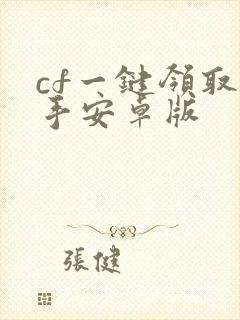 cf一鍵領取
手安卓版
張健